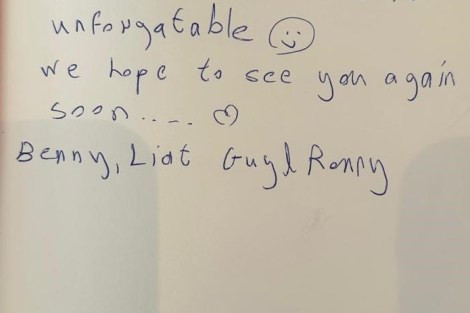 unforgatable ☺
we hope to see you again
soon..... ♡
Benny, Liat Guy & Ronny